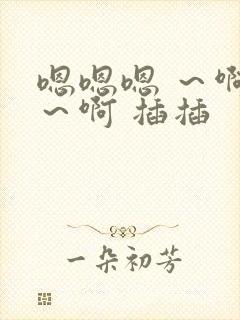 嗯嗯嗯 ～啊
～啊 插插
一朵初芳